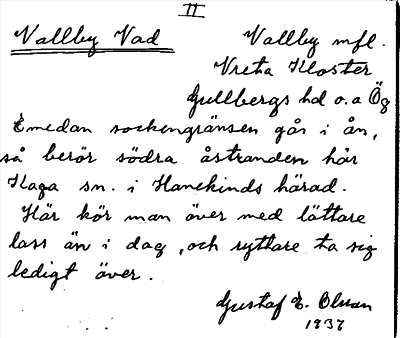 II
Vallby Vad
Vallby mfl.
Vreta Kloster
Gullbergs hd o.a Ög
Emedan sockengränsen går i ån,
så berör södra åstranden här
Kaga sn. i Hanekinds härad.
Här kör man över med lättare
lass än i dag, och ryttare ta sig
ledigt över.
Gustaf E. Olsson
1937